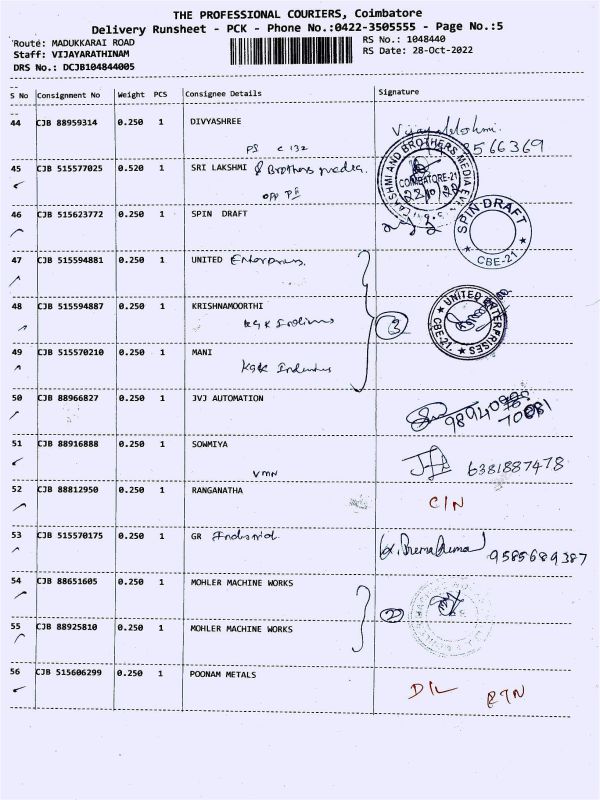 THE PROFESSIONAL COURIERS, Coimbatore
Delivery Runsheet - PCK - Phone No.:0422-3505555 - Page No.:5
Route: MADUKKARAI ROAD RS No.: 1048440
Staff: VIJAYARATHINAM RS Date: 28-Oct-2022
DRS No.: DCJB104844005
S No Consignment No Weight PCS Consignee Details Signature
44 CJB 88959314 0.250 1 DIVYASHREE
PS C 132 566369
45 CJB 515577025 0.520 1 SRI LAKSHMI & Brothers media
opp
LAKSHMI AND BROTHERS MEDIA
COIMBATORE-21
46 CJB 515623772 0.250 1 SPIN DRAFT
SPIN DRAFT
CBE-21
47 CJB 515594881 0.250 1 UNITED Enterprises
48 CJB 515594887 0.250 1 KRISHNAMOORTHI
3
UNITED ENTERPRISES
CBE-21.
49 CJB 515570210 0.250 1 MANI
50 CJB 88966827 0.250 1 JVJ AUTOMATION
51 CJB 88916888 0.250 1 SOWMIYA
VMN 6381887478
52 CJB 88812950 0.250 1 RANGANATHA
C/N
53 CJB 515570175 0.250 1 GR Industrial
9585689387
54 CJB 88651605 0.250 1 MOHLER MACHINE WORKS
2
55 CJB 88925810 0.250 1 MOHLER MACHINE WORKS
56 CJB 515606299 0.250 1 POONAM METALS
D/L RTN